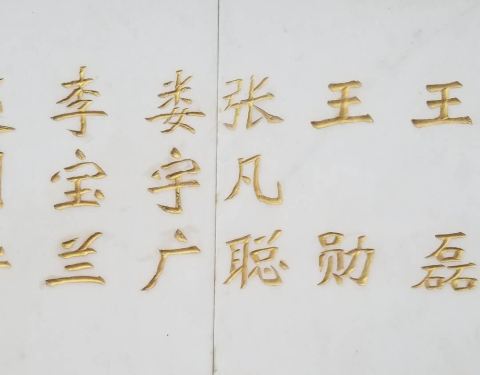 李宝兰
娄宇广
张凡聪
王勋
王磊